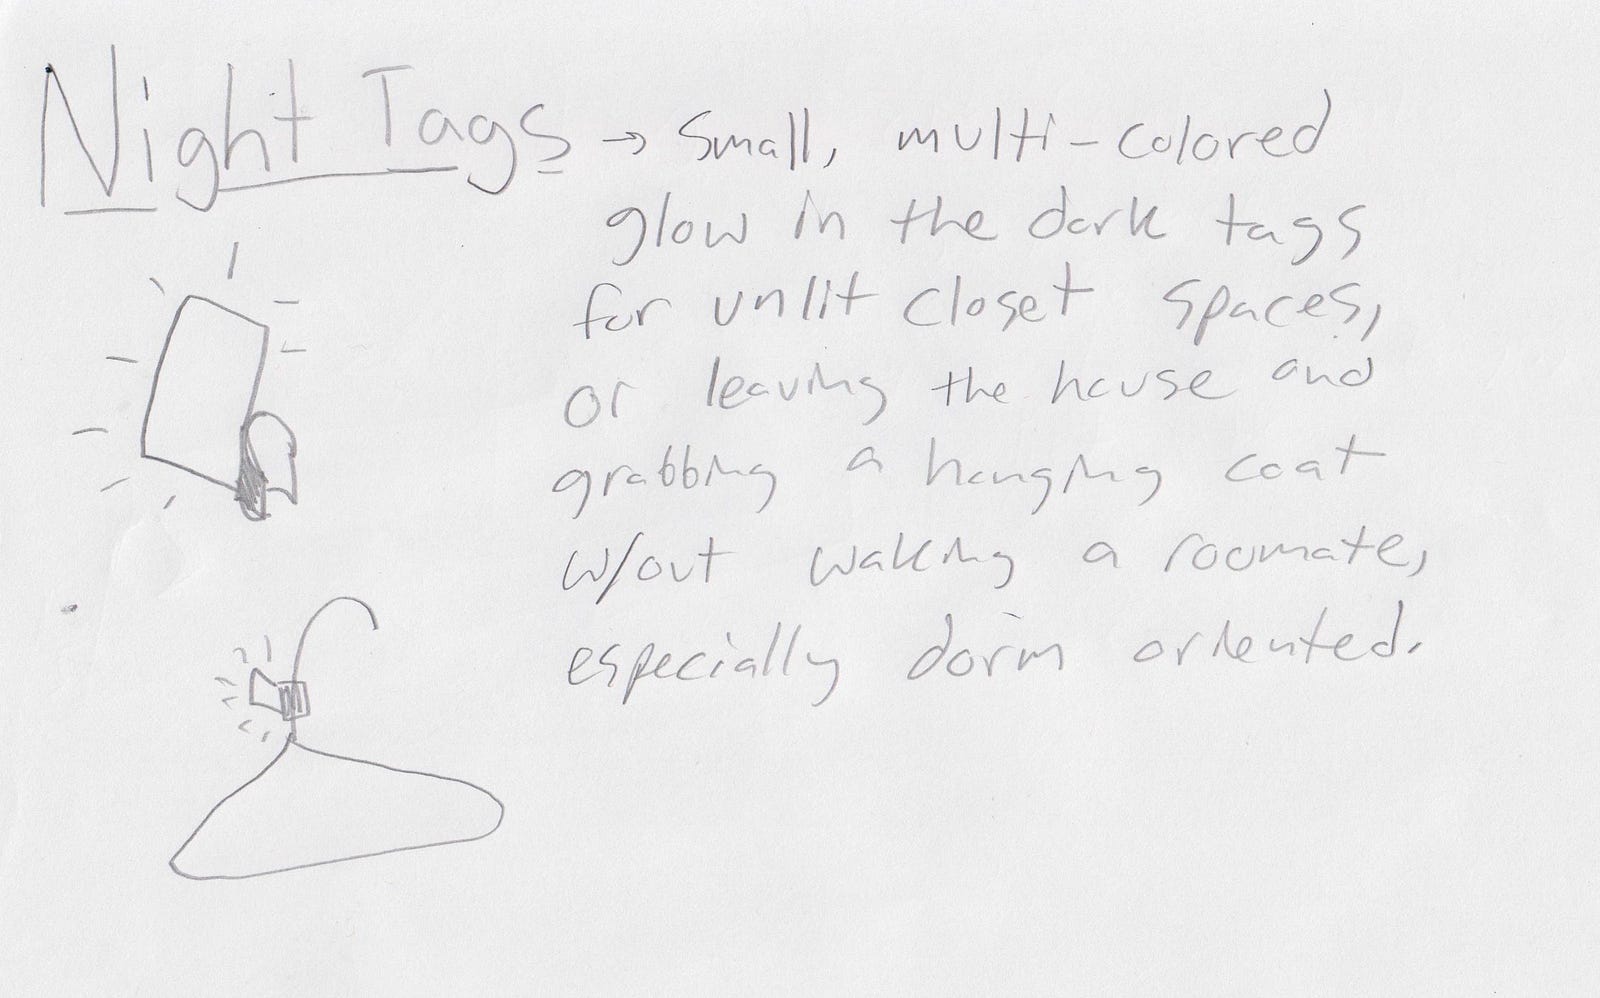 Night Tags → Small, multi-colored
glow in the dark tags
for unlit closet spaces,
or leaving the house and
grabbing a hanging coat
w/out waking a roomate,
especially dorm oriented.